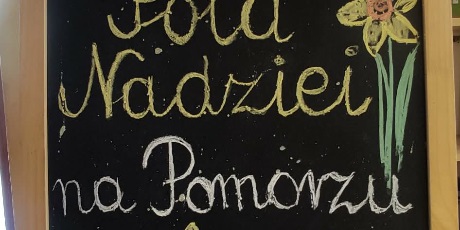 Pola
Nadziei
na Pomorzu